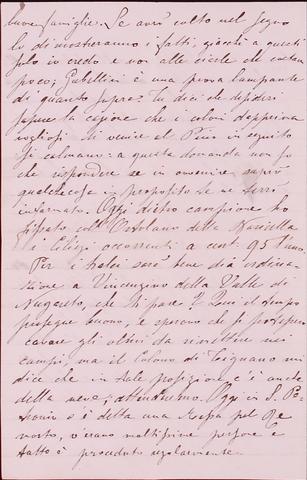 buone famiglie. Se avrò colto nel segno
lo dimostreranno i fatti, giacchè a questi
solo io credo e non alle ciarle che contan
poco; Gabellini è una prova lampante
di quanto sopra. Tu dici che desideri
sapere la cagione che i coloni dapprima
vogliosi di venire al Pino in seguito
si calmano: a questa domanda non so
che rispondere se in avvenire saprò
qualche cosa in proposito te ne terrò
informato. Oggi dietro campione ho
fissato coll'Ortolano della
i occorrenti a cent. 95 l'uno.
Per i sarà bene dia ordina
zione a Vincenzino della Valle di
che ti pare? Qui il tempo
prosegue buono, e speriamo che si possa
cavare gli olivi da rimettere nei
campi, ma il Colono di mi
dice che in tale posizione c'è anche
della neve; attenderemo. Oggi in S. Pe
tronio s'è detta una Messa pel Re
morto, v'erano moltissime persone e
tutto è proceduto regolarmente.